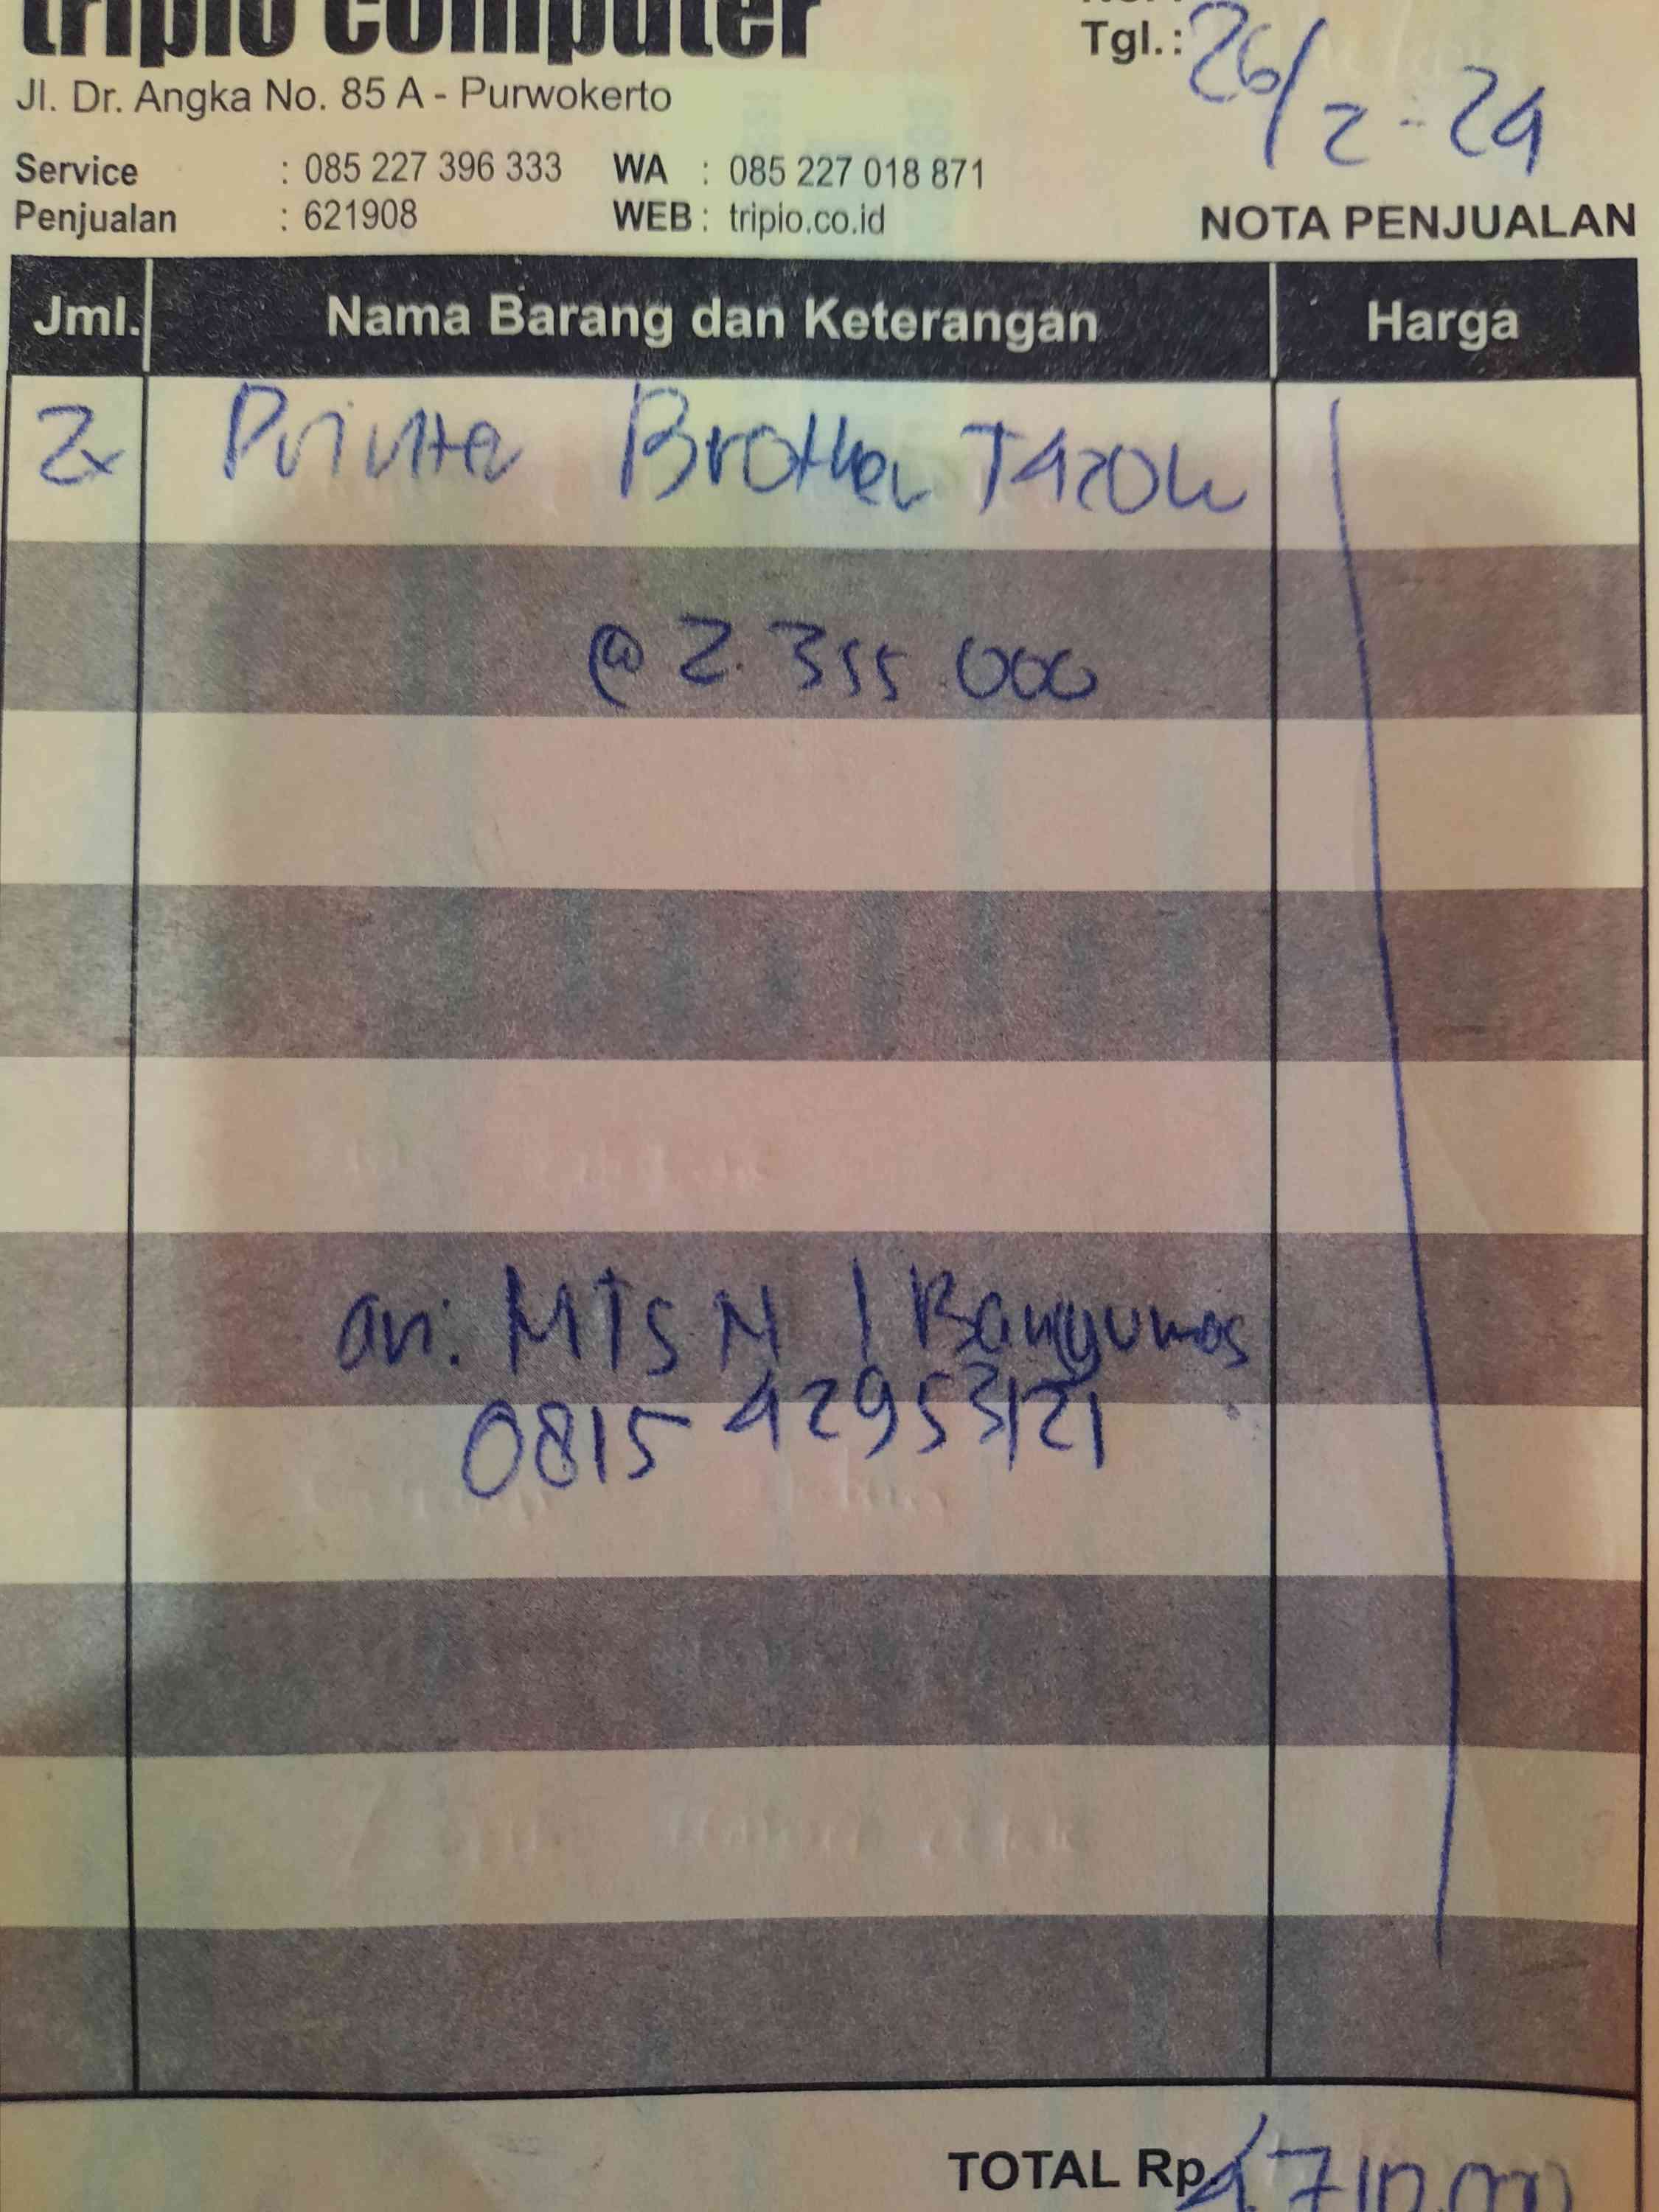 tripio computer
Tgl.: 26/2-24
Jl. Dr. Angka No. 85 A - Purwokerto
Service : 085 227 396 333 WA : 085 227 018 871
Penjualan : 621908 WEB : tripio.co.id
NOTA PENJUALAN
Jml. Nama Barang dan Keterangan Harga
2x Printer Brother T420W
@ 2.355.000
an. MTSN 1 Banyumas
0815 42953121
TOTAL Rp. 4.710.000